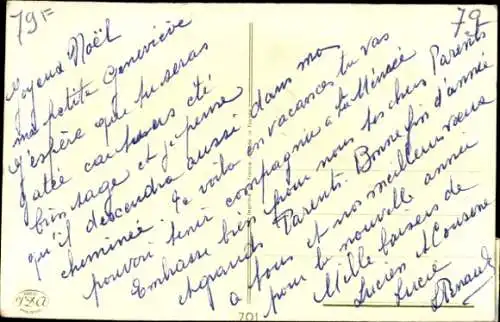 79F
79
Joyeux Noël
ma petite Geneviève
J'espère que tu seras
gatée car tu as été
bien sage et je pense
qu'il descendra aussi dans ma
cheminée. Te voila en vacances tu vas
pouvoir tenir compagnie a ta Mémée
Embrasse bien pour nous tes chers Parents
et grands Parents. Bonne fin d'année
a tous et nos meilleurs vœux
pour la nouvelle année
Mille baisers de
Lucien et Cousine
Lucie
701